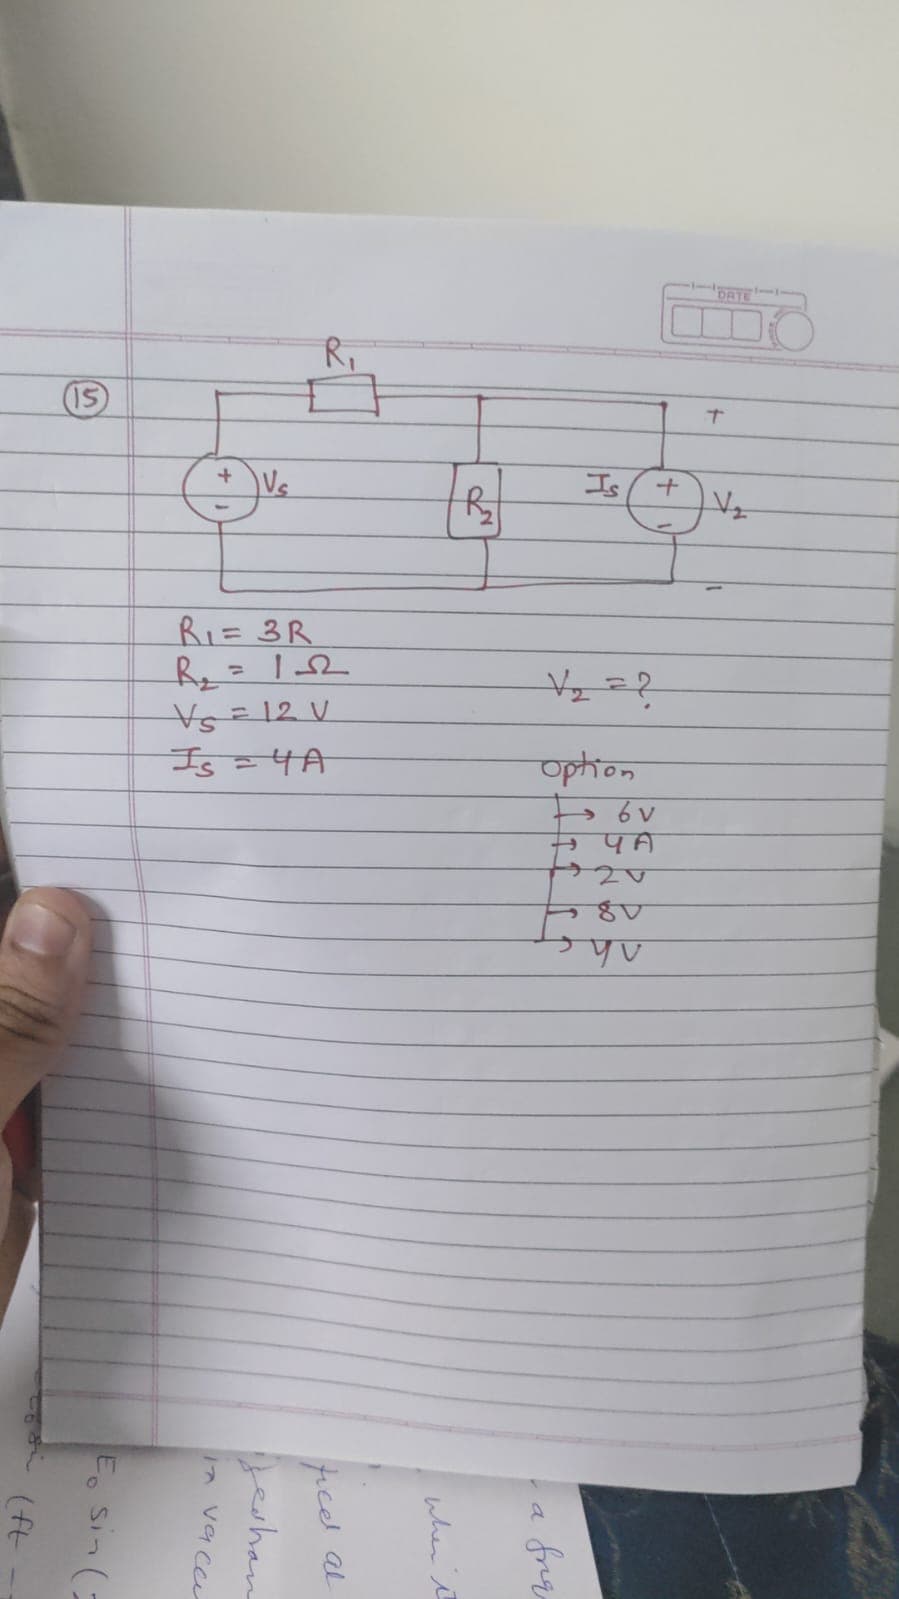 DATE
15
R1
+
+
Vs
-
R2
Is
+
V2
-
-
R1 = 3R
R2 = 1 Ω
V2 = ?
Vs = 12 V
Is = 4A
option
→ 6V
→ 4A
→ 2V
→ 8V
→ 4V
a
when it
ficed at
in vacu
E0 sin (
(ft -